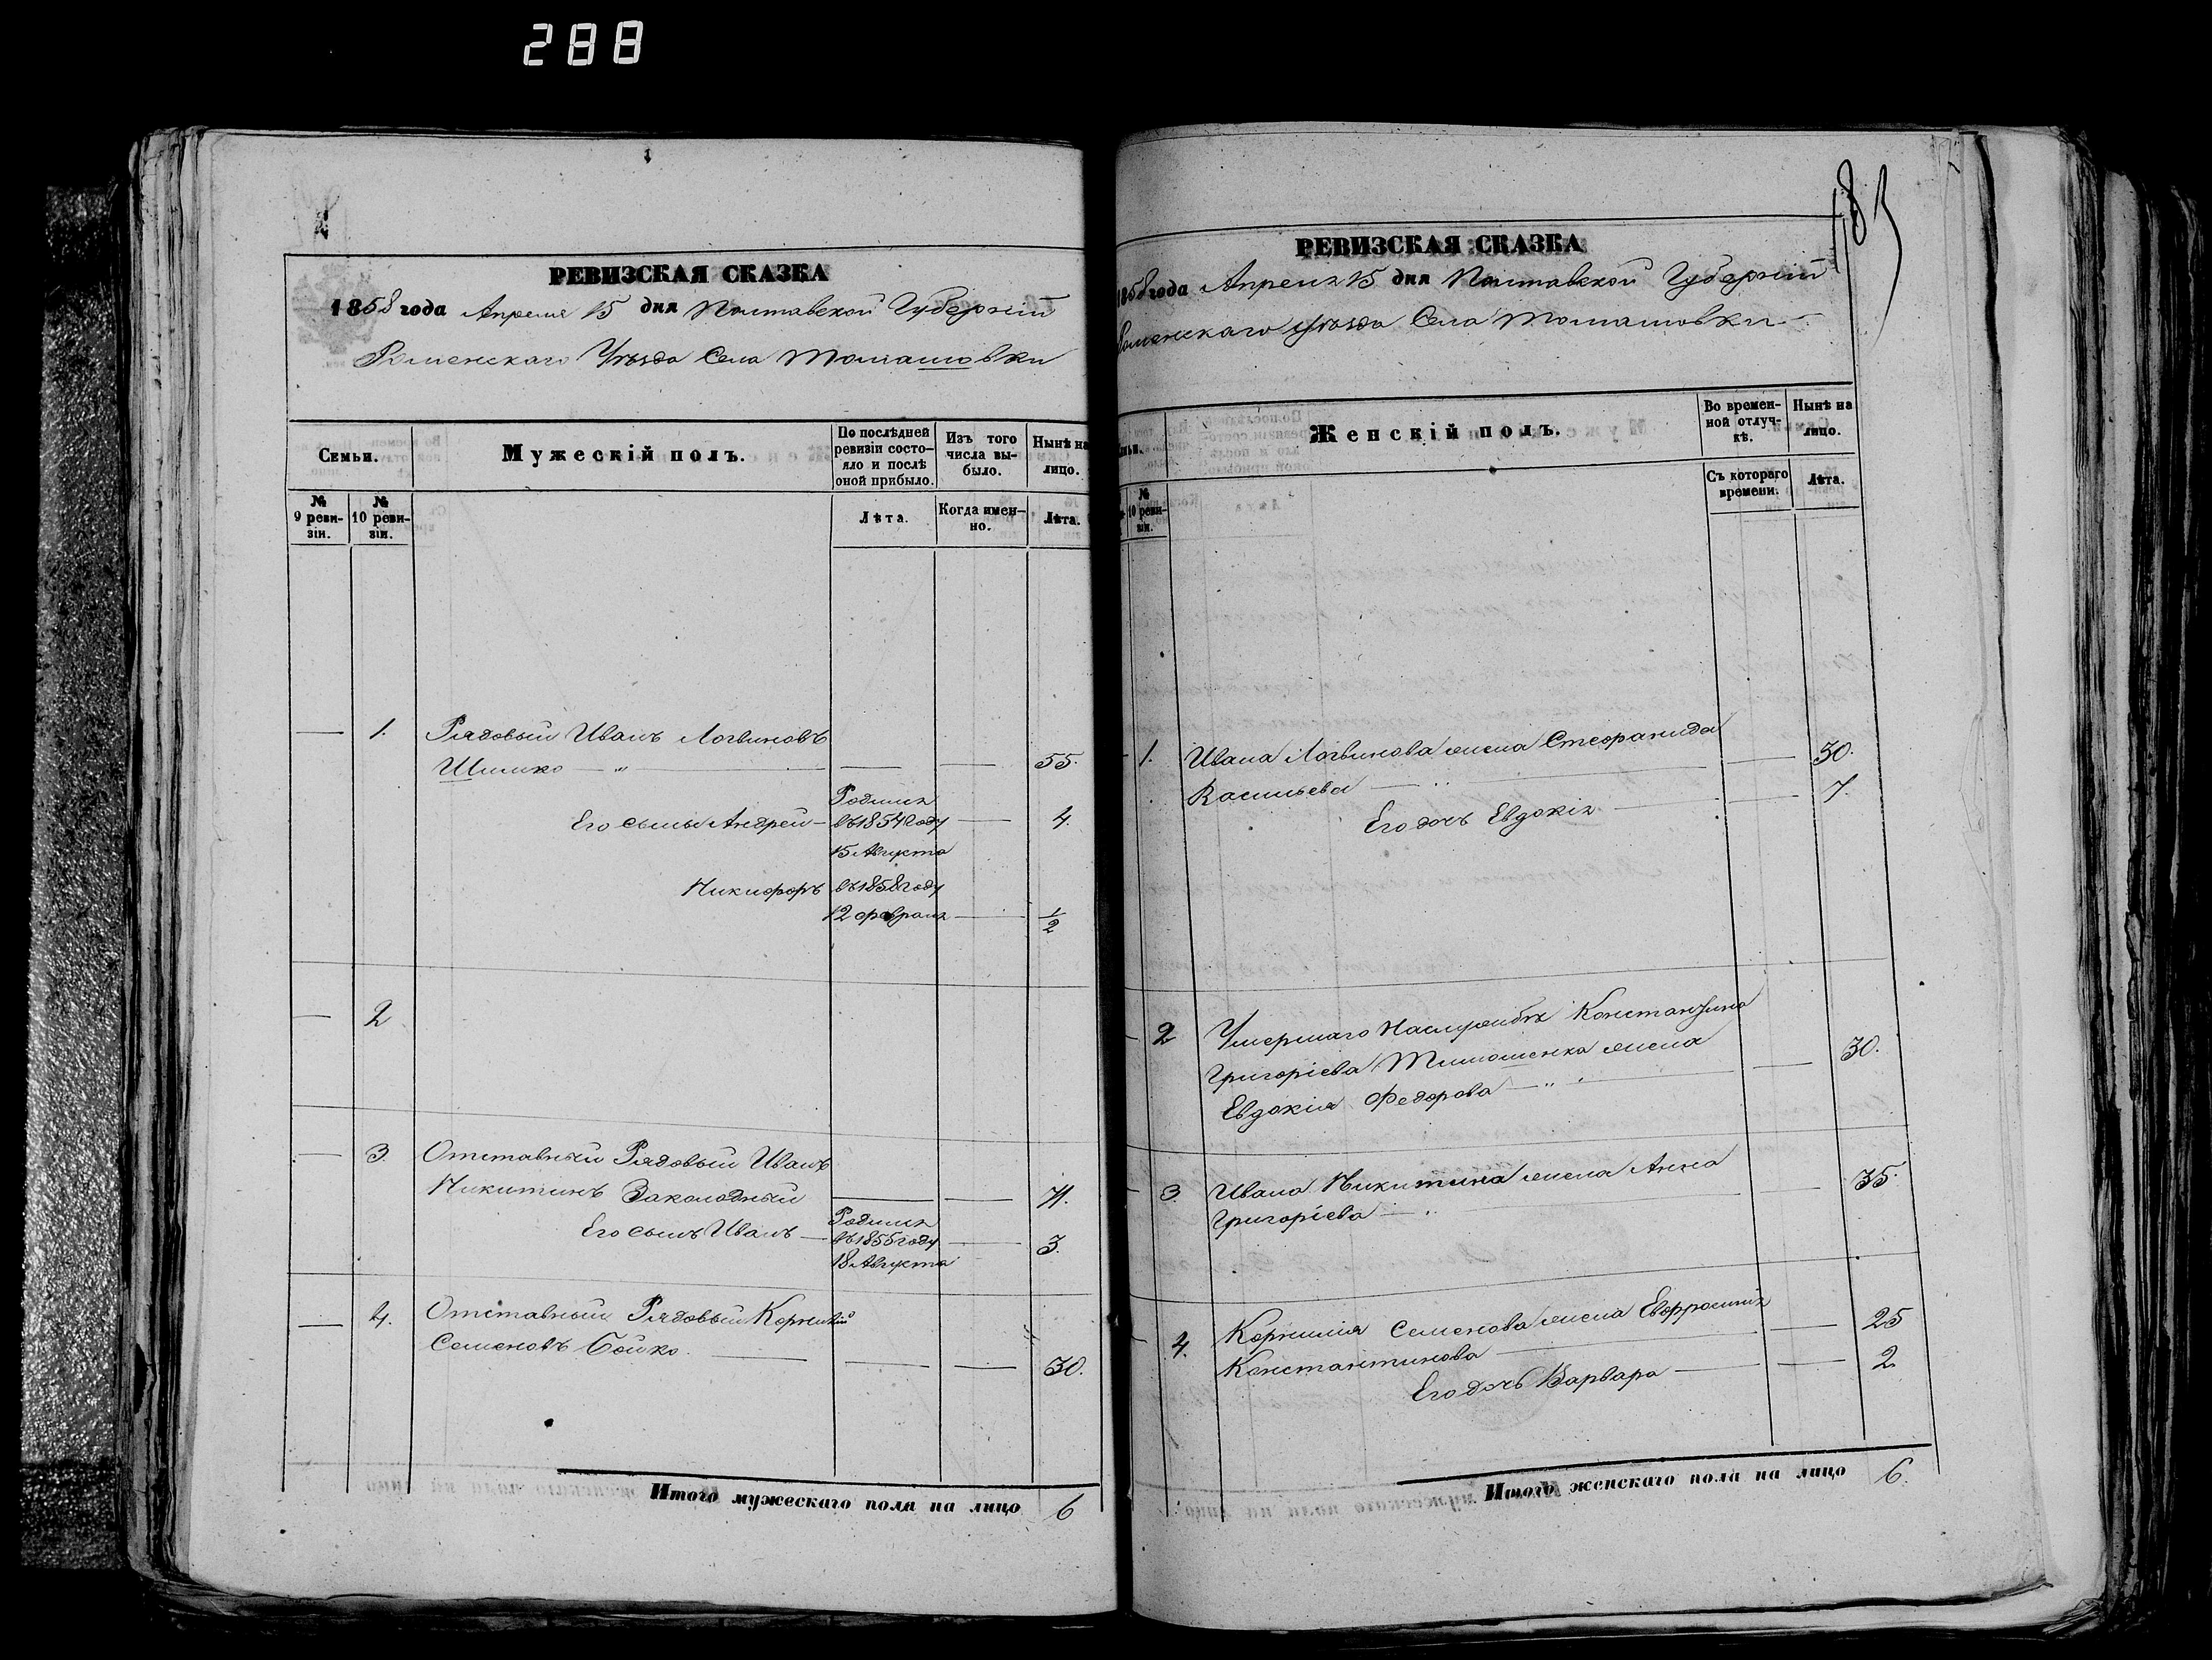 288
РЕВИЗСКАЯ СКАЗКА
1858 года Апреля 15 дня Полтавской Губернiи
Роменскаго Уѣзда Села Томашовки
Семьи.
Мужескiй полъ.
По послѣдней ревизiи состо-
яло и послѣ
оной прибыло.
Изъ того
числа вы-
было.
Нынѣ на
лицо.
№
9 реви-
зiи.
№
10 реви-
зiи.
Лѣта.
Когда имен-
но.
Лѣта.
1. Рядовый Иванъ Логвиновъ
55.
Родился
Его сыны Андрей въ 1854 году 4.
15 Августа
Никифоръ въ 1858 году
12 февраля 1/2
2
3. Отставный Рядовый Иванъ
Никитинъ Заколодный 71.
Родился
Его сынъ Иванъ въ 1855 году 3.
18 Августа
4. Отставный Рядовый Корнилiй
Семеновъ Бойко. 30.
Итого мужескаго пола на лицо 6
185
РЕВИЗСКАЯ СКАЗКА
1858 года Апреля 15 дня Полтавской Губернiи
Роменскаго Уѣзда Села Томашовки
Женскiй полъ.
Во времен-
ной отлуч-
кѣ.
Нынѣ на
лицо.
№
10 реви-
зiи.
Съ котораго
времени.
Лѣта.
1. Ивана Логвинова жена Стефанида
30.
Васильева
7.
Его дочь Евдокiя
2 Умершаго на службѣ Константина
Григорiева Тимошенка жена 30.
Евдокiя Федорова
3. Ивана Никитина жена Анна 35.
Григорiева
4. Корнилiя Семенова жена Евфросинiя 25
Константинова 2
Его дочь Варвара
Итого женскаго пола на лицо 6.